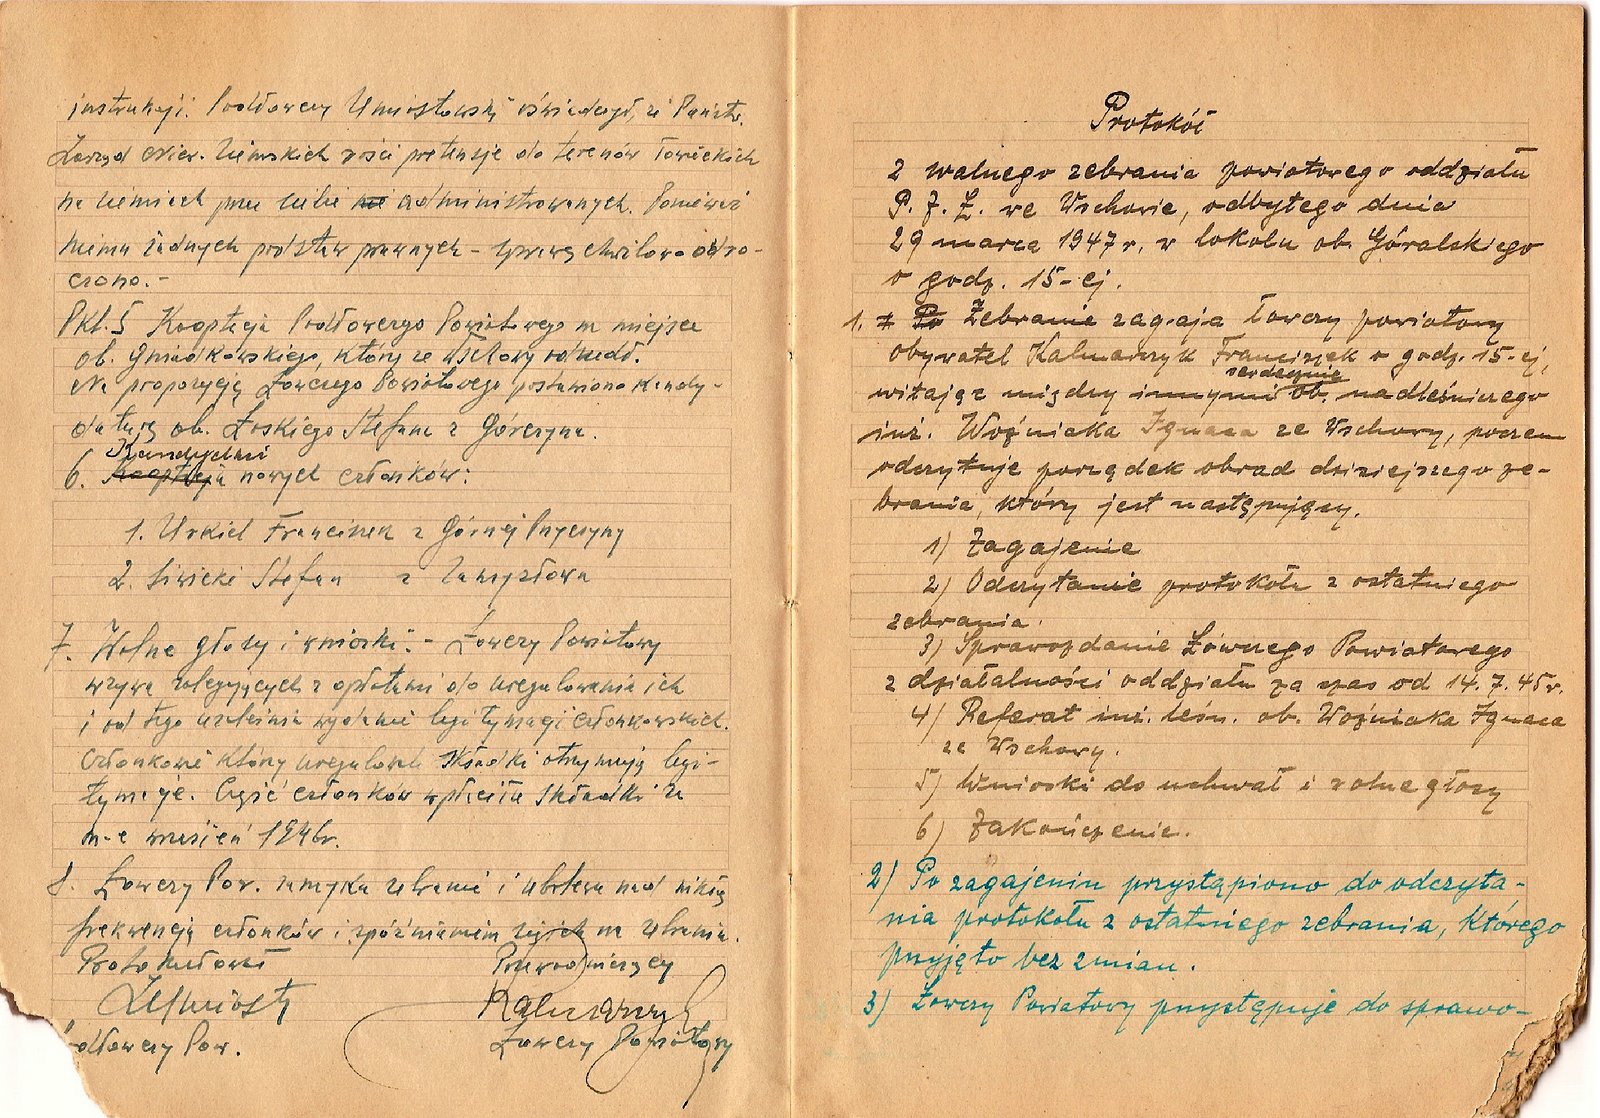 instrukcji. Podłowczy Umiastowski oświadczył, że Państw.
Zarząd Nier. Ziemskich rości pretensje do terenów łowieckich
na ziemiach przez siebie nie administrowanych. Ponieważ
niema żadnych podstaw prawnych – sprawę chwilowo odro-
czono. –
Pkt. 5 Kooptacja Podłowczego Powiatowego na miejsce
ob. Gniadkowskiego, który ze Wschowy odszedł.
Na propozycję Łowczego Powiatowego postawiono kandy-
daturę ob. Łoskiego Stefana z Góreczyna.
Kandydaci
6. Kooptacja nowych członków:
1. Urkiel Franciszek z Górnej Pryczyny
2. Siwicki Stefan z Zamysłowa
7. Wolne głosy i wnioski. – Łowczy Powiatowy
wzywa zalegających z opłatami do uregulowania ich
i od tego uzależnia wydanie legitymacji członkowskich.
Członkowie którzy uregulowali składki otrzymują legi-
tymacje. Część członków wpłaciła składki za
m-c wrzesień 1946r.
8. Łowczy Pow. zamyka zebranie i ubolewa nad niską
frekwencją członków i spóźnianiem się ich na zebrania.
Protokułował Przewodniczący
ZUmiast Kalmarczyk
Podłowczy Pow. Łowczy Powiatowy
Protokół
z walnego zebrania powiatowego oddziału
P. Z. Ł. we Wschowie, odbytego dnia
29 marca 1947 r. w lokalu ob. Góralskiego
o godz. 15-ej.
1. Po Zebranie zagaja łowczy powiatowy
obywatel Kalmarczyk Franciszek o godz. 15-ej,
serdecznie
witając między innymi ob. nadleśniczego
inż. Woźniaka Ignaca ze Wschowy, poczem
odczytuje porządek obrad dzisiejszego ze-
brania, który jest następujący.
1) Zagajenie
2) Odczytanie protokołu z ostatniego
zebrania.
3) Sprawozdanie Łównego Powiatowego
z działalności oddziału za czas od 14. 7. 45 r.
4) Referat inż. leśn. ob. Woźniaka Ignaca
ze Wschowy.
5) Wnioski do uchwał i wolne głosy
6) Zakończenie.
2) Po zagajeniu przystąpiono do odczyta-
nia protokołu z ostatniego zebrania, którego
przyjęto bez zmian.
3) Łowczy Powiatowy przystępuje do sprawo-